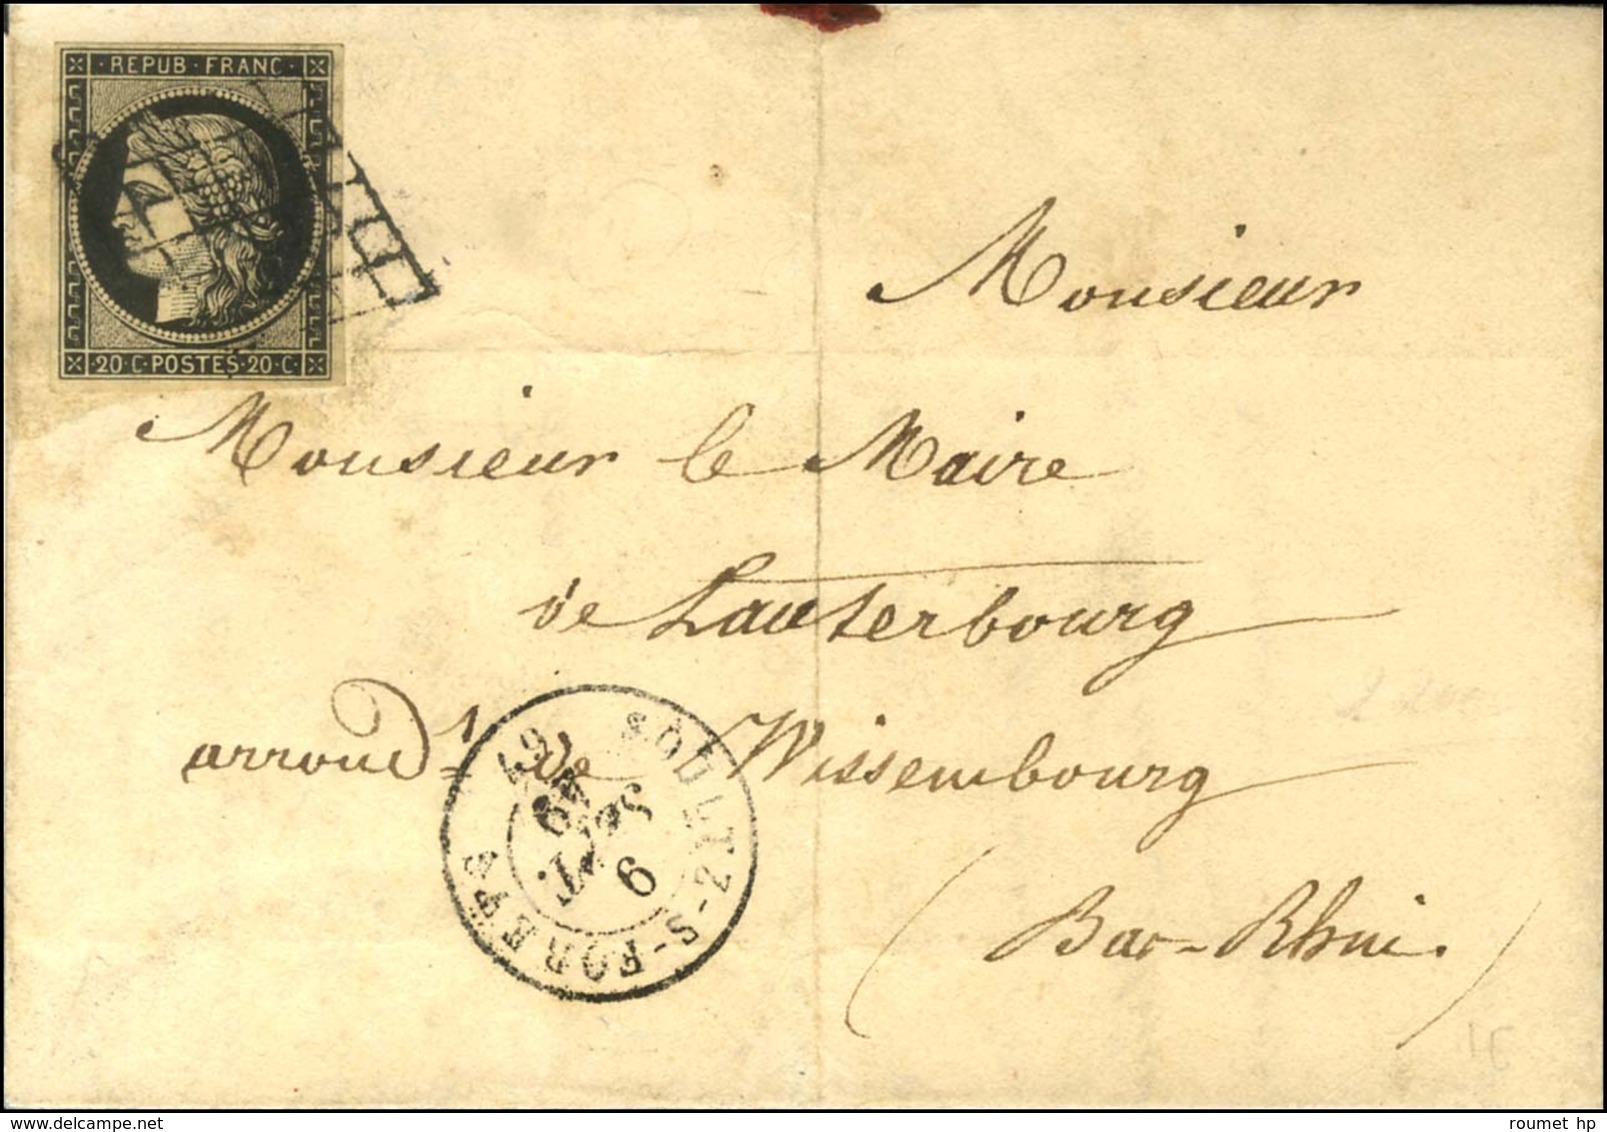 REPUB · FRANC ·
20 · C · POSTES · 20 · C ·
Monsieur
Monsieur le Maire
de Lauterbourg
arrond.t de Wissembourg
(Bas-Rhin.)
SOULTZ-S-FORETS
67
9
SEPT.
49
roumet hp